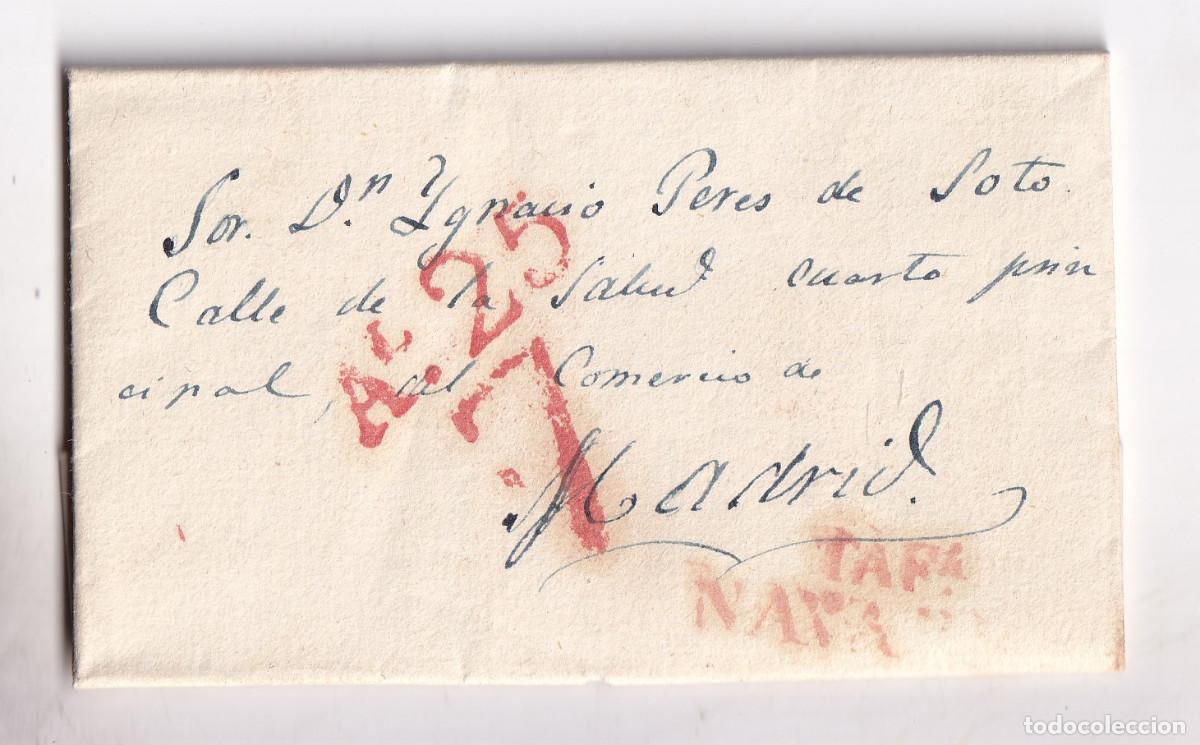 Sor. D.n Ygnacio Peres de Soto.
Calle de la Salud cuarto prin
cipal, del Comercio de
Madrid.
At. 25
7
TAFA
NAVA
todocoleccion